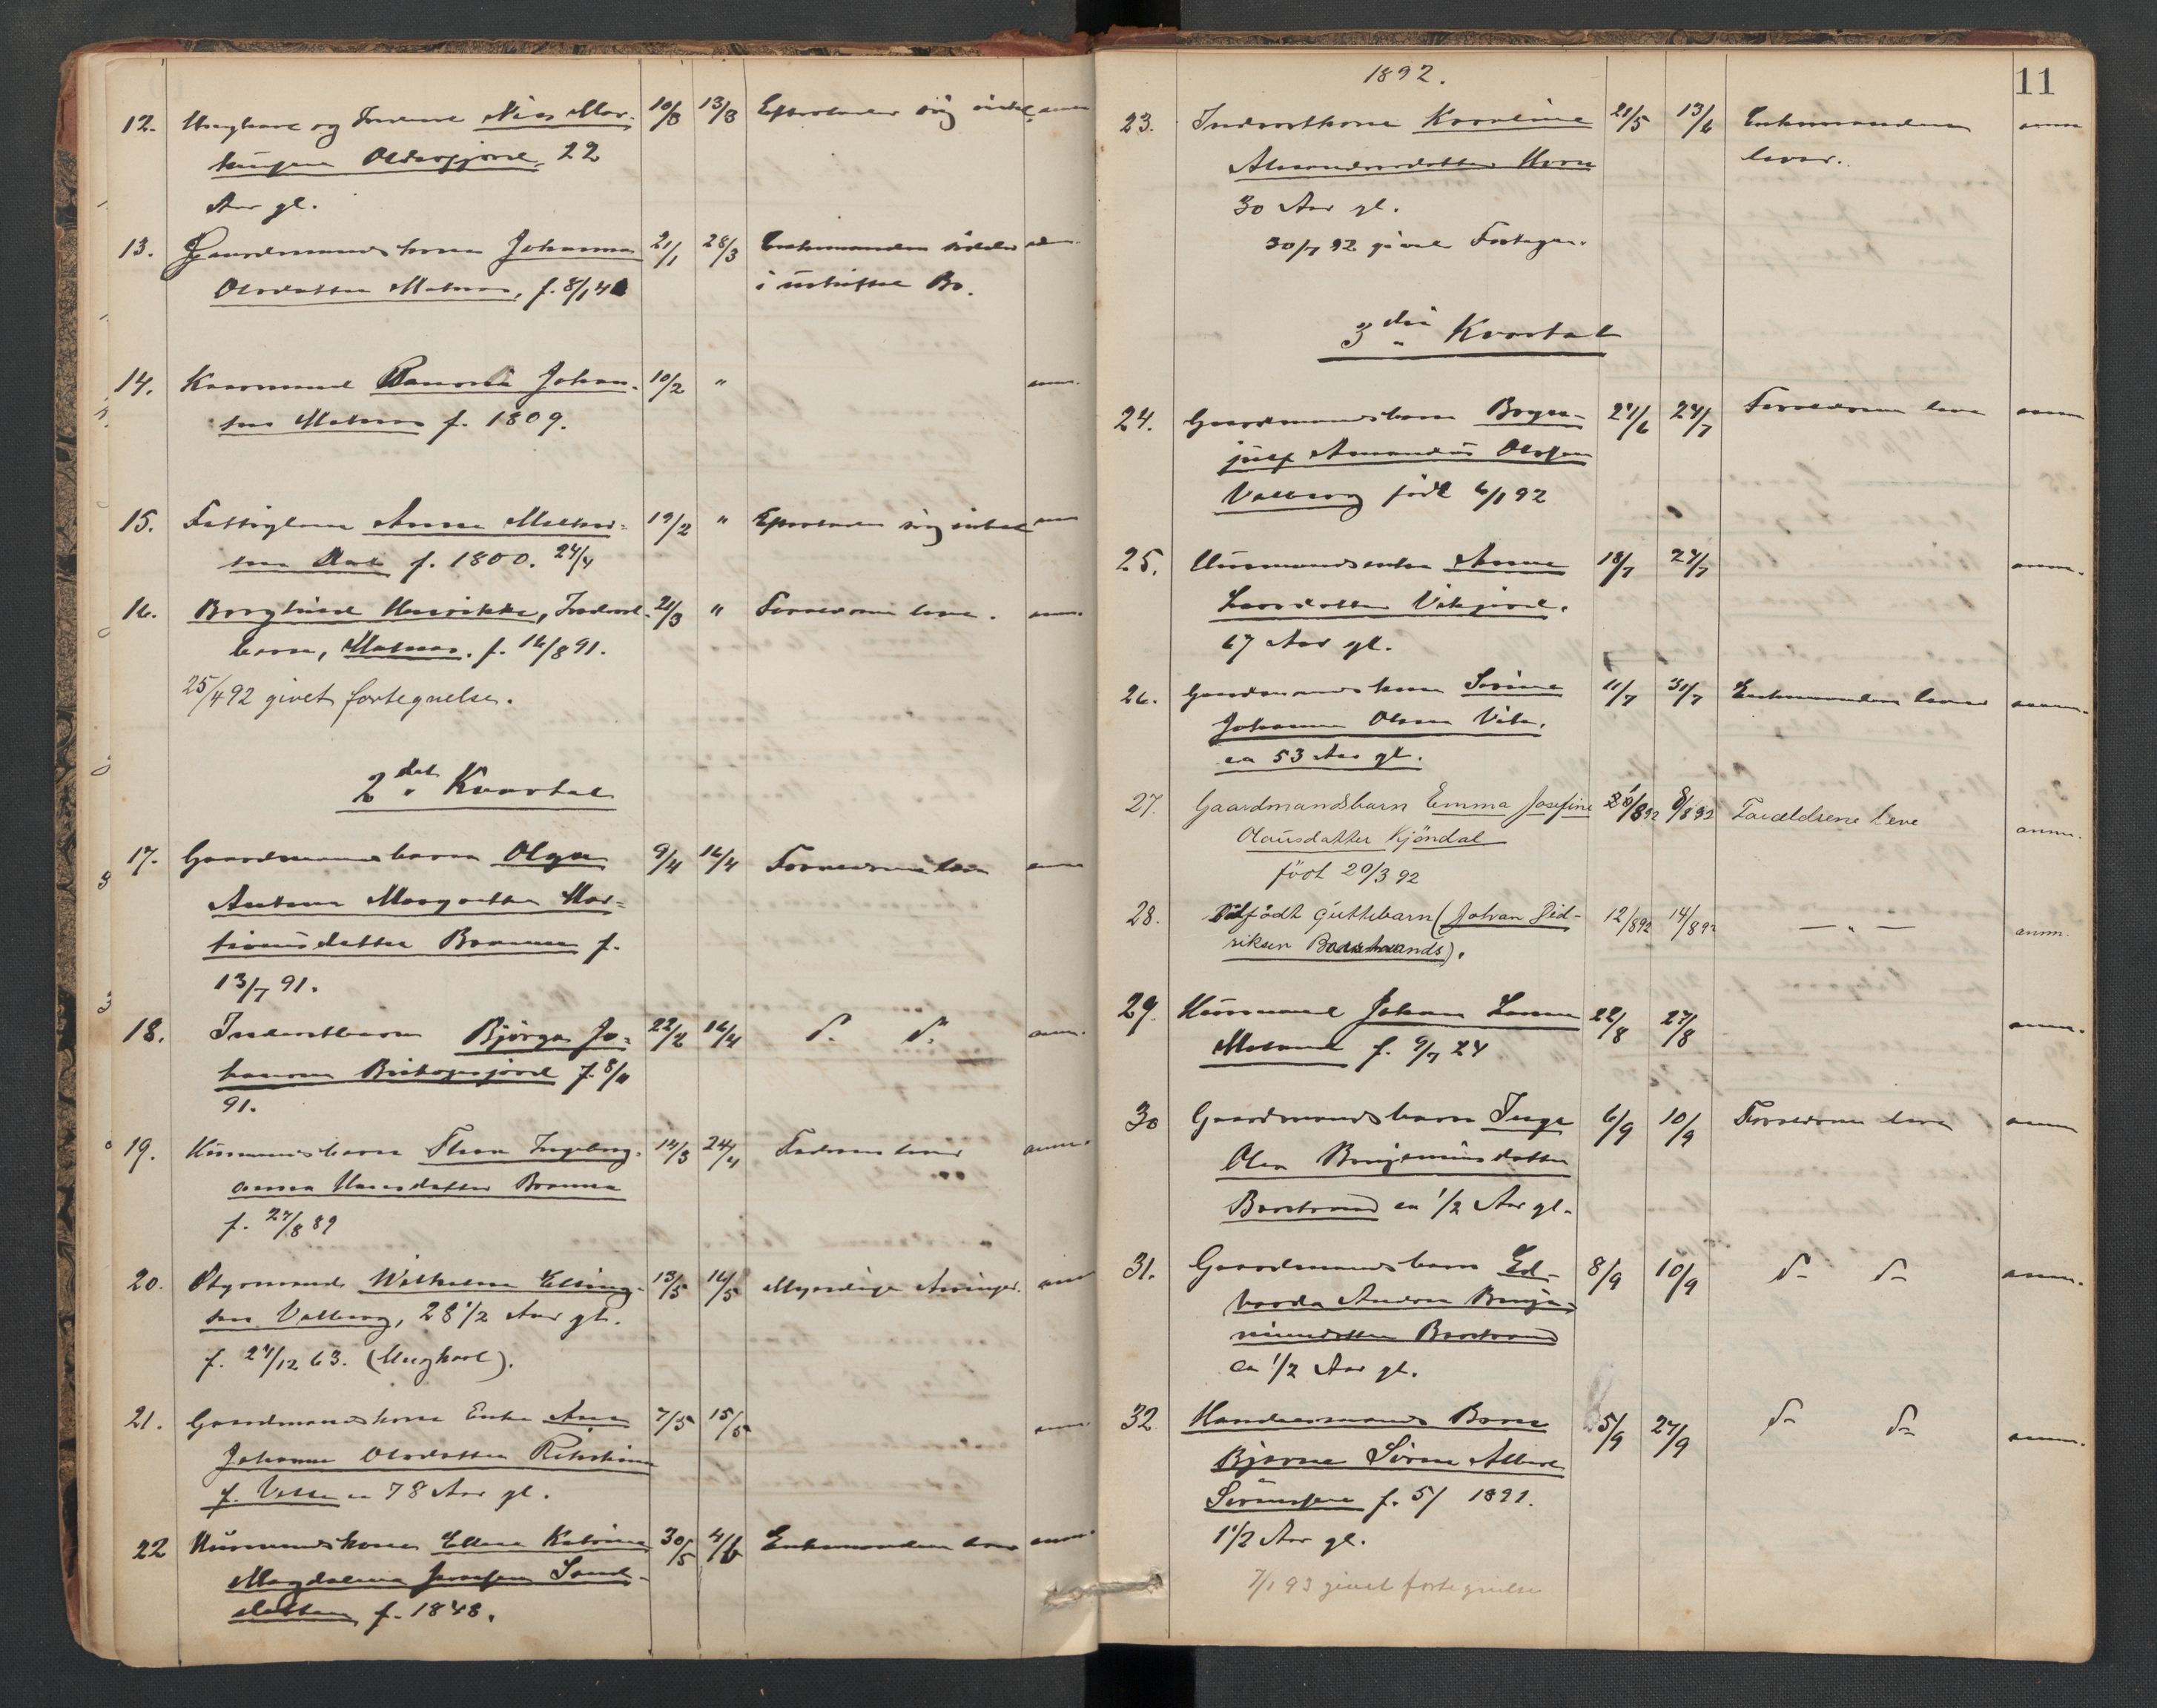 12. Ungkarl og Inderst Nils Mar- 10/3 13/3 Efterlader sig intet anm.
tinsen Oldergjord, 22
Aar gl.
13. Gaardmandskone Johanna 21/1 28/3 Enkemanden sidder anm.
Olsdatter Molnes, f. 8/1 4 i uskiftet Bo.
14. Kaarmand Johan- 10/2 " anm.
sen Molnes f. 1809.
15. Fattiglem Anne 19/2 " Efterlader sig intet anm.
f. 1800. 24/4
16. Borghild Henrikke, Inderst- 21/3 " Forældrene leve. anm.
barn, Molnes. f. 16/8 91.
25/4 92 givet fortegnelse.
2det Kvartal
17. Gaardmandsbarn Olga 9/4 16/4 Forældrene leve anm
Antona Margrethe Mar-
tinusdatter Brænna f.
13/7 91.
18. Inderstbarn Bjørga Jo- 22/2 16/4 do do anm.
hansen Bishopsjord f. 8/11
91.
19. Husmandsbarn Thea Ingeborg- 14/3 24/4 Faderen lever anm.
anna Hansdatter Brænna
f. 27/8 89
20. Styrmand Wilhelm Elling- 13/5 16/5 Myndige Arvinger. anm
sen Valberg, 28 1/2 Aar gl.
f. 27/12 63. (Ungkarl).
21. Gaardmandskone Enke Ane 7/5 15/5 anm.
Johanna Olsdatter
f. 78 Aar gl.
22 Husmandskone Ellen Katrine 30/5 4/6 Enkemanden lever anm.
Magdalena Jensen Sand-
sletten f. 1848.
1892.
11
23. Inderstkone Karoline 21/5 13/6 Enkemanden anm
Alexandersdatter Horn lever.
30 Aar gl.
30/7 92 givet Fortegn.
3die Kvartal
24. Gaardmandsbarn Borgen- 21/6 24/7 Forældrene leve anm
julf Amandus Olsen
Valberg født 6/1 92
25. Husmandsenke Anne 18/7 27/7 anm.
Larsdatter Vikjord.
67 Aar gl.
26. Gaardmandskone Sørine 11/7 31/7 Enkemanden lever anm.
Johanna Olsen Vik.
ca 53 Aar gl.
27. Gaardmandsbarn Emma Josefine /8 92 8/8 92 Forældrene leve anm.
Olausdatter Kjøndal
født 20/3 92
28. Dødfødt guttebarn (Johan Did- 12/8 92 14/8 92 — " — anm.
riksen Borstrands).
29. Husmand Johan Larsen 22/8 27/8 anm.
f. 9/7 24
30 Gaardmandsbarn Inga 6/9 10/9 Forældrene leve anm
Olea Benjaminsdatter
Borstrand ca 1/2 Aar gl.
31. Gaardmandsbarn Ed- 8/9 10/9 do do anm.
varda Andrea Benja-
minsdatter Borstrand
ca 1/2 Aar gl.
32. Handelsmands Barn 5/9 27/9 do do anm.
Bjarne Sören Albert
Sörensen f. 5/ 1891.
1 1/2 Aar gl.
7/1 93 givet fortegnelse